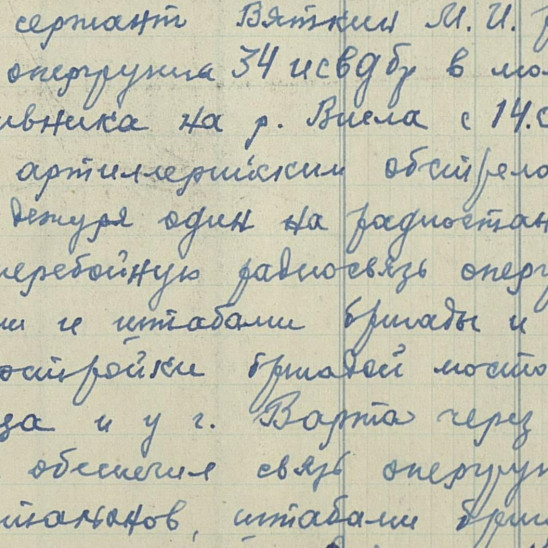 сержант Вяткин М. И. р
опергруппа 34 исвдбр в мо
ивника на р. Висла с 14.
артиллерийским обстрело
дежуря один на радиостан
перебойную радиосвязь опер
ми и штабами бригады и
остройки бригадой мосто
ца и у г. Варта через
обеспечил связь опергруп
тальонов, штабами бриг